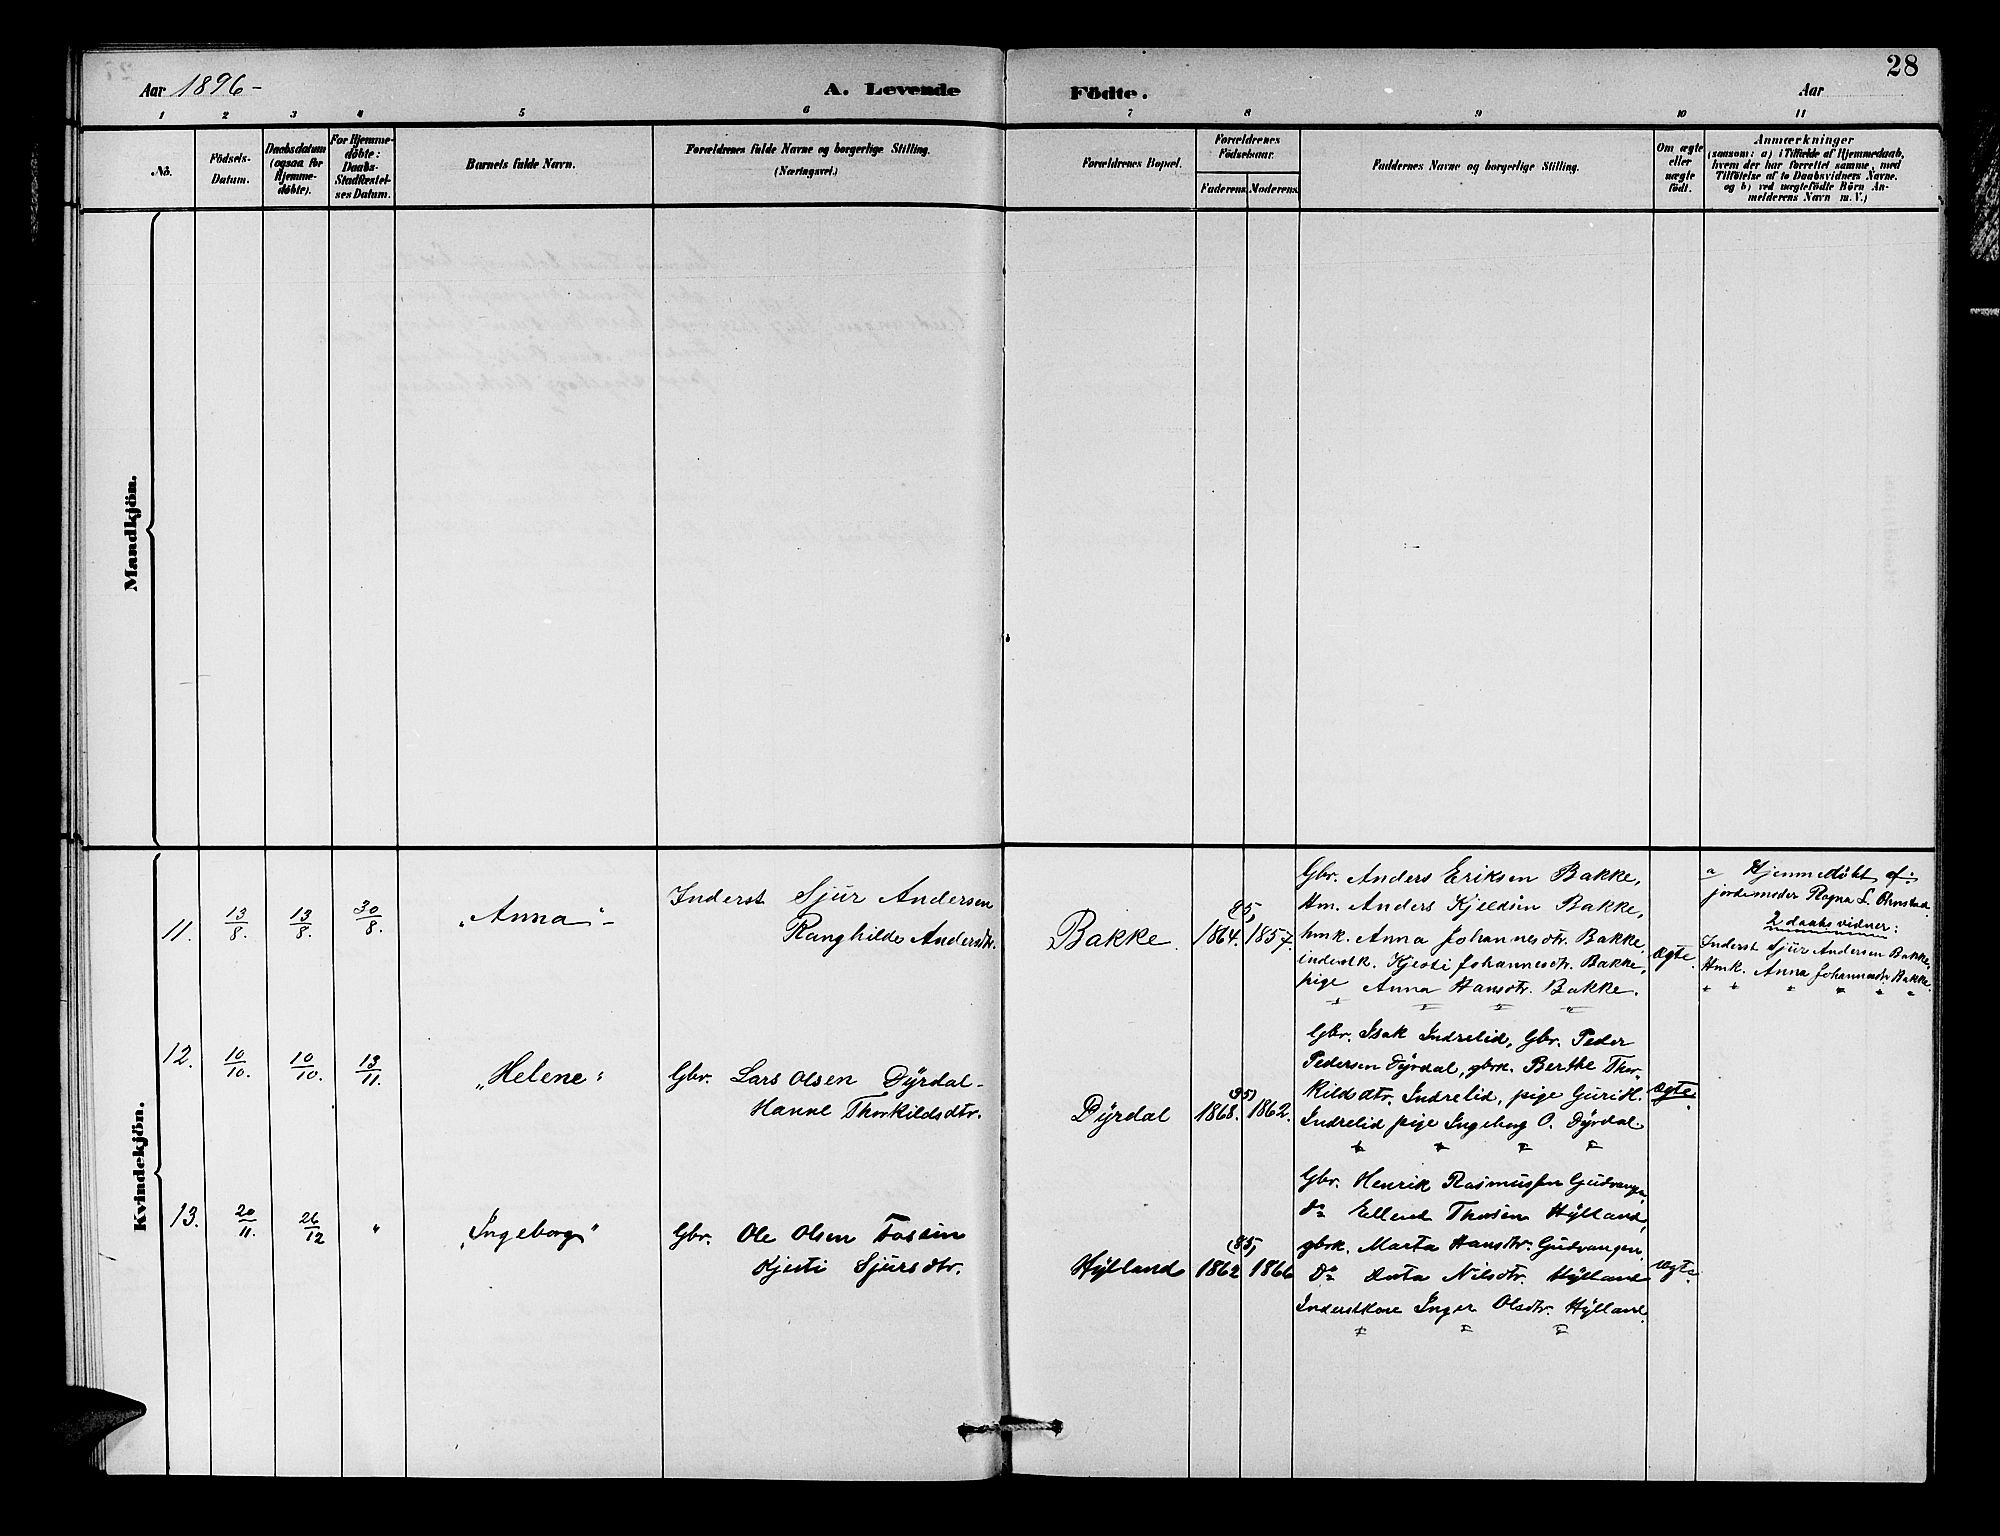 28
Aar 1896-
A. Levende
Födte.
Aar
1 2 3 4 5 6 7 8 9 10 11
No.
Födsels-
Datum.
Daabsdatum
(ogsaa for
Hjemme-
döbte).
For Hjemme-
döbte:
Daabs-
Stadfæstel-
ses Datum.
Barnets fulde Navn.
Forældrenes fulde Navne og borgerlige Stilling.
(Næringsvei.)
Forældrenes Bopæl.
Forældrenes
Födselsaar.
Faderens. Moderens.
Faddernes Navne og borgerlige Stilling.
Om ægte
eller
uægte
födt.
Anmærkninger
(saasom: a) i Tilfælde af Hjemmedaab,
hvem der har forrettet samme, med
Tilföielse af to Daabsvidners Navne.
og b) ved uægtefödte Börn An-
melderens Navn m. V.)
Mandkjön.
Kvindekjön.
11. 13/8. 13/8. 30/8. "Anna"-
Inderst Sjur Andersen
Ranghilde Andersdtr.
Bakke. 1864. 1857.
Gbr. Anders Eriksen Bakke,
Hm. Anders Kjeldsen Bakke,
hmk. Anna Johannesdtr. Bakke,
inderstk. Kjesti Johannesdtr. Bakke,
pige Anna Hansdtr. Bakke.
ægte.
a Hjemmedöbt af:
jordemoder Ragna L. Ornstad.
2 daabsvidner:
Inderst Sjur Andersen Bakke,
Hmk. Anna Johannesdtr. Bakke.
12. 10/10. 10/10. 13/11. "Helene"
Gbr. Lars Olsen Dÿrdal-
Hanne Thorkildsdtr.
Dÿrdal 1868. 1862.
Gbr. Isak Indrelid, Gbr. Peder
Pedersen Dÿrdal, gbrk. Berthe Thor-
kildsdtr. Indrelid, pige Guri H.
Indrelid pige Ingeborg O. Dÿrdal
ægte.
13. 20/11. 26/12 " "Ingeborg"
Gbr. Ole Olsen Fossen
Kjesti Sjursdtr.
Hÿlland 1862 1866
Gbr. Henrik Rasmussen Gudvangen,
do Ellend Thorsen Hÿlland,
gbrk. Marta Hansdtr. Gudvangen.
Do Dorta Nilsdtr. Hÿlland
Inderstkone Inger Olsdtr. Hÿlland.
ægte.